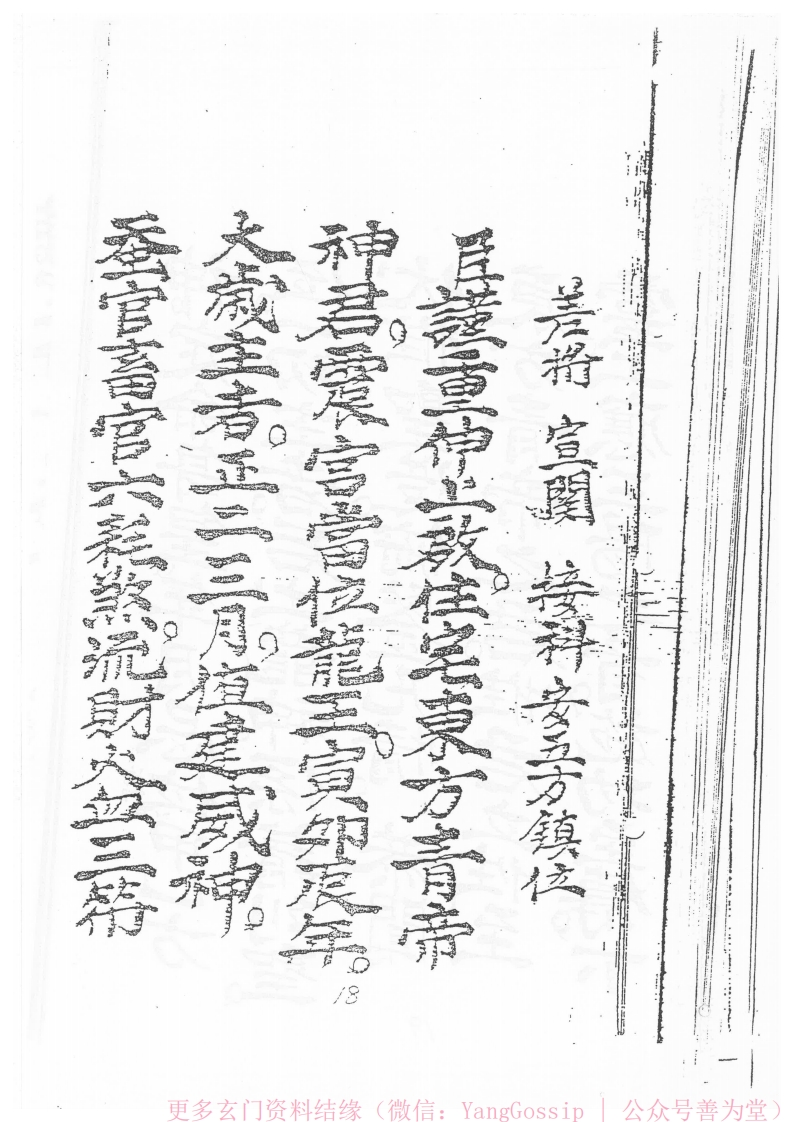 差将 宣關 接科安五方鎮位
臣謹重伸上啟。住宅東方青帝
神君。震宮當位龍王。寅卯辰年。
大歲主者。正二三月。值建威神。
蚕官畜官六耗煞。流財火血三
18
一
更多玄门资料结缘（微信：YangGossip | 公众号善为堂）